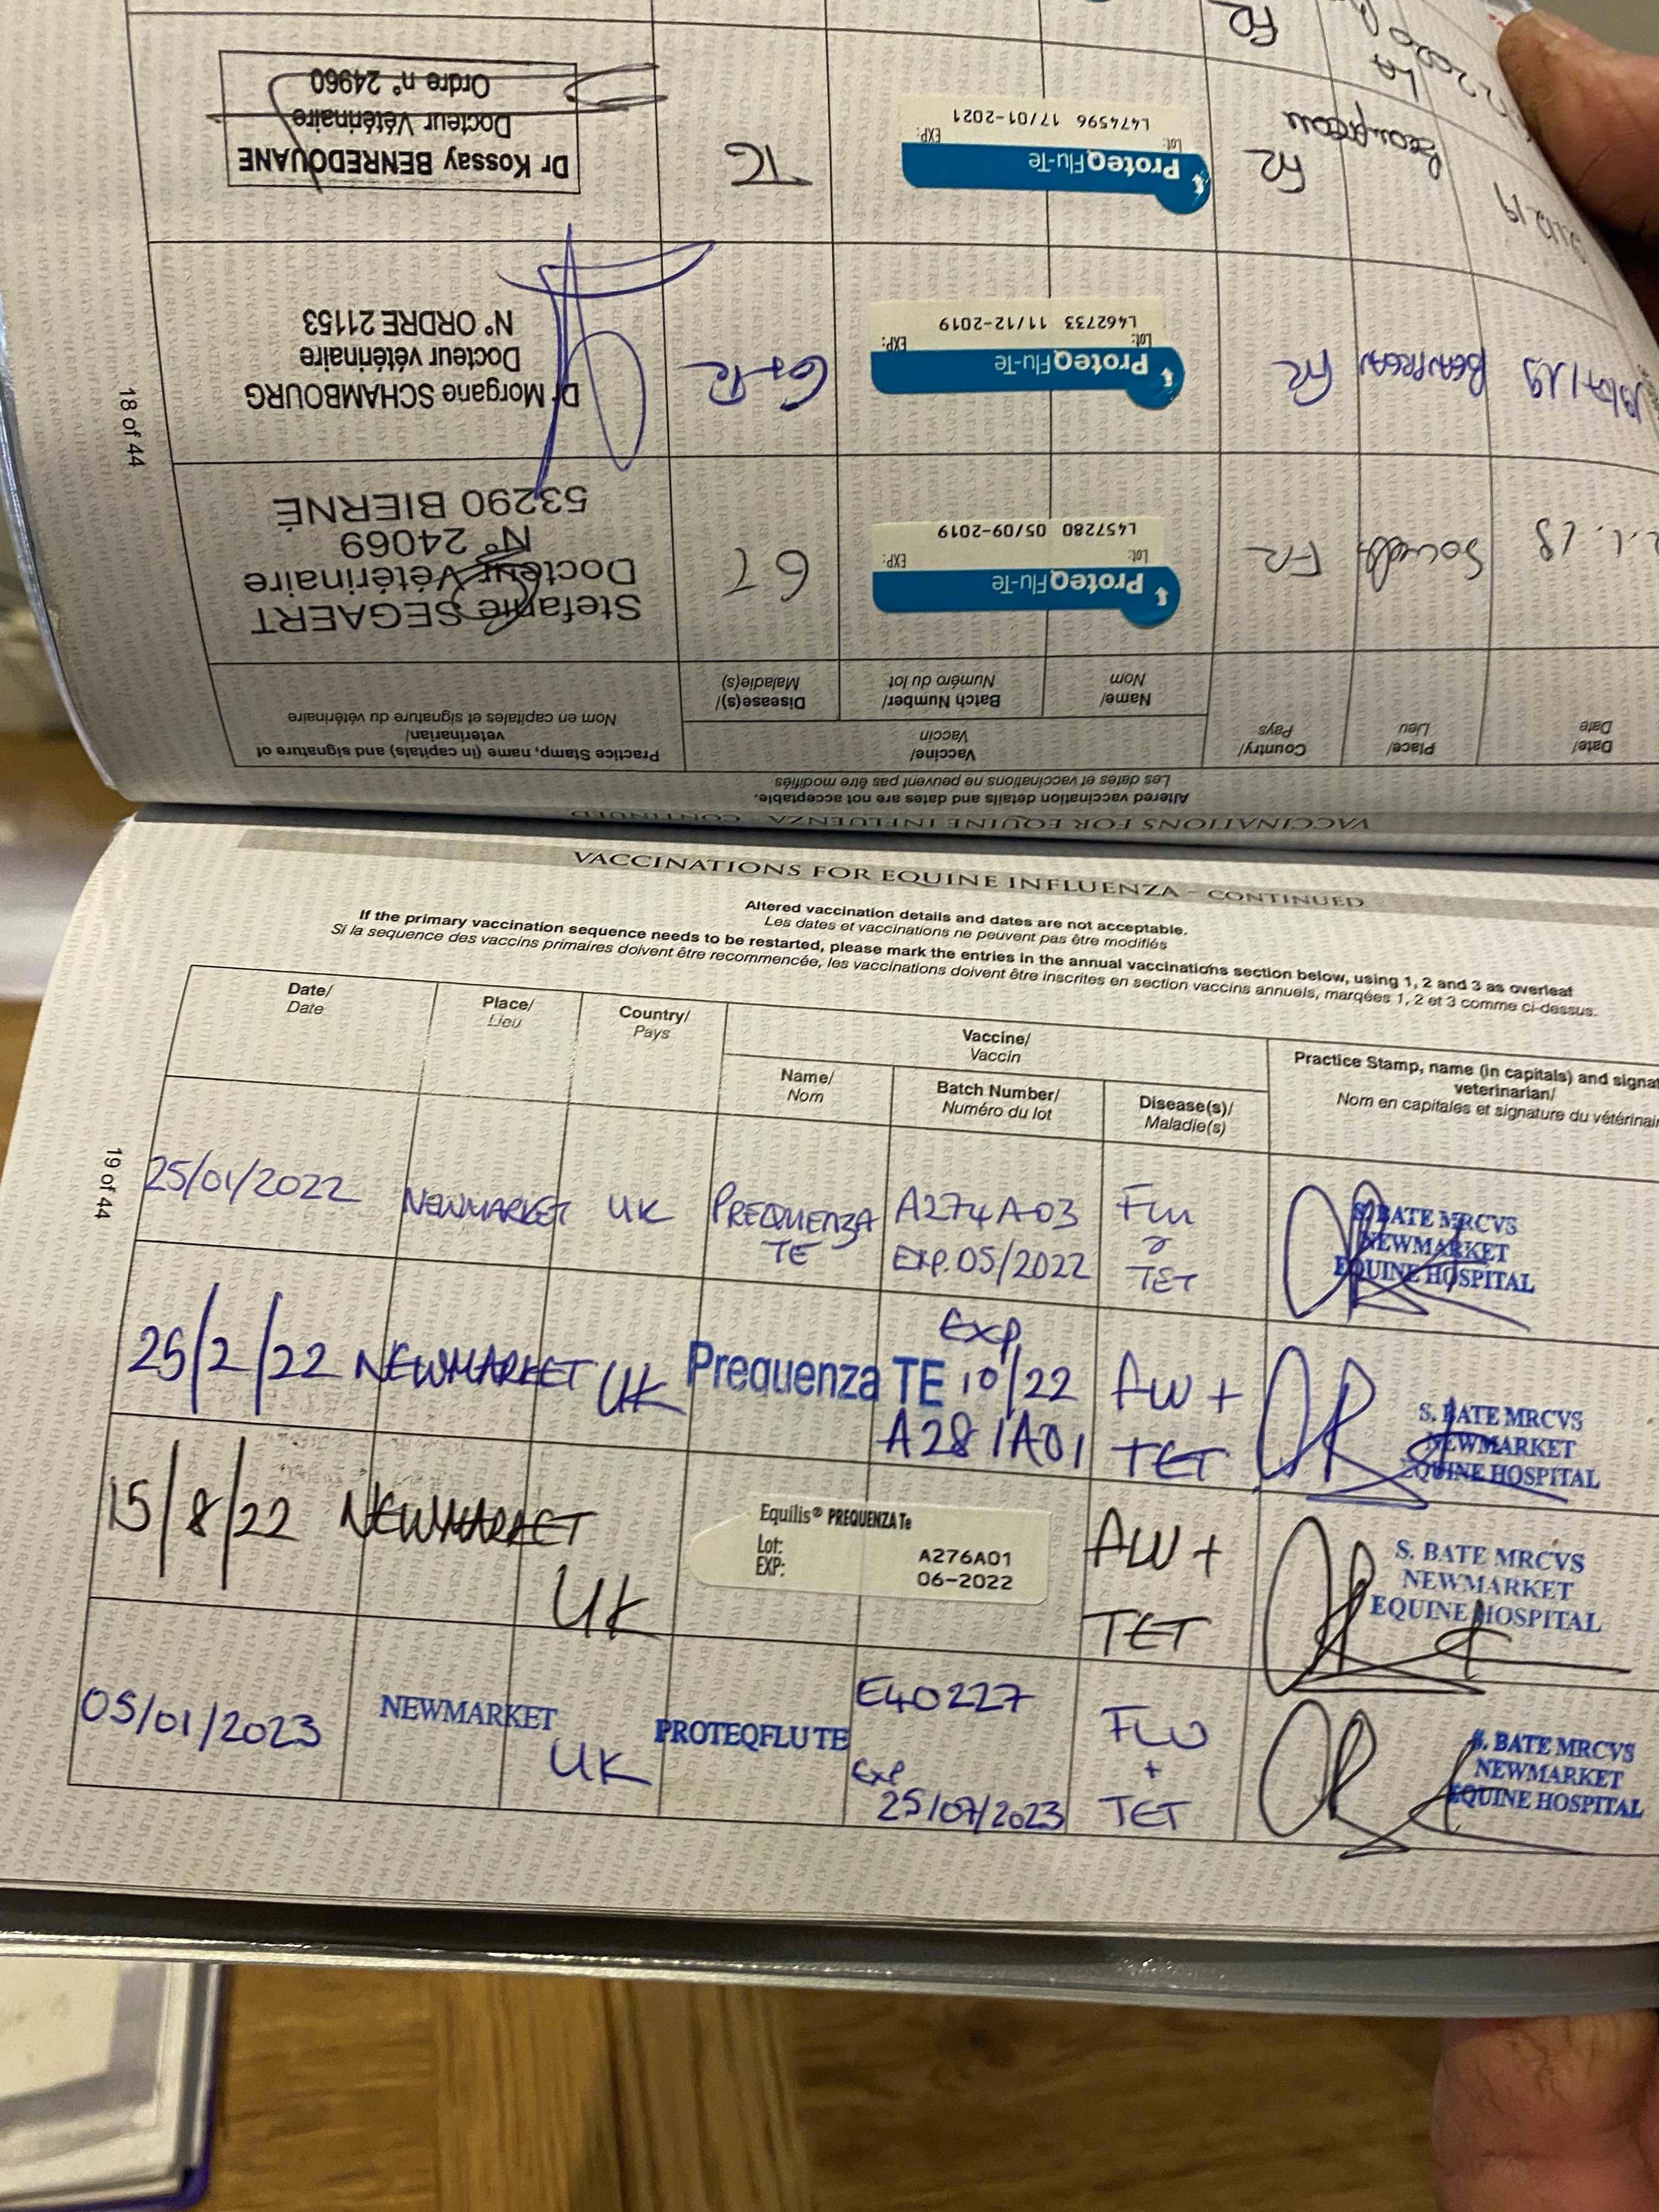 VACCINATIONS FOR EQUINE INFLUENZA - CONTINUED
Altered vaccination details and dates are not acceptable.
Les dates et vaccinations ne peuvent pas être modifiés
Date/
Date
Place/
Lieu
Country/
Pays
Vaccine/
Vaccin
Name/
Nom
Batch Number/
Numéro du lot
Disease(s)/
Maladie(s)
Practice Stamp, name (in capitals) and signature of
veterinarian/
Nom en capitales et signature du vétérinaire
FR
ProteqFlu-Te
Lot: EXP:
L457280 05/09-2019
GT
Stefanie SEGAERT
Docteur Vétérinaire
N° 24069
53290 BIERNÉ
BEAUPREAU
FR
ProteqFlu-Te
Lot: EXP:
L462733 11/12-2019
Dr Morgane SCHAMBOURG
Docteur vétérinaire
N° ORDRE 21153
Beaupreau
FR
ProteqFlu-Te
Lot: EXP:
L474596 17/01-2021
TG
Dr Kossay BENREDOUANE
Docteur Vétérinaire
Ordre n° 24960
FR
18 of 44
VACCINATIONS FOR EQUINE INFLUENZA - CONTINUED
Altered vaccination details and dates are not acceptable.
Les dates et vaccinations ne peuvent pas être modifiés
If the primary vaccination sequence needs to be restarted, please mark the entries in the annual vaccinations section below, using 1, 2 and 3 as overleaf
Si la sequence des vaccins primaires doivent être recommencée, les vaccinations doivent être inscrites en section vaccins annuels, marqées 1, 2 et 3 comme ci-dessus.
Date/
Date
Place/
Lieu
Country/
Pays
Vaccine/
Vaccin
Name/
Nom
Batch Number/
Numéro du lot
Disease(s)/
Maladie(s)
Practice Stamp, name (in capitals) and signat
veterinarian/
Nom en capitales et signature du vétérinair
25/01/2022 NEWMARKET UK PREQUENZA TE
A274A03
EXP. 05/2022
FLU
&
TET
S. BATE MRCVS
NEWMARKET
EQUINE HOSPITAL
25/2/22 NEWMARKET UK Prequenza TE
EXP
10/22
A281A01
FLU +
TET
S. BATE MRCVS
NEWMARKET
EQUINE HOSPITAL
15/8/22 NEWMARKET
UK
Equilis® PREQUENZA Te
Lot: A276A01
EXP: 06-2022
FLU +
TET
S. BATE MRCVS
NEWMARKET
EQUINE HOSPITAL
05/01/2023 NEWMARKET
UK
PROTEQFLU TE
E40227
Exp
25/07/2023
FLU
+
TET
S. BATE MRCVS
NEWMARKET
EQUINE HOSPITAL
19 of 44